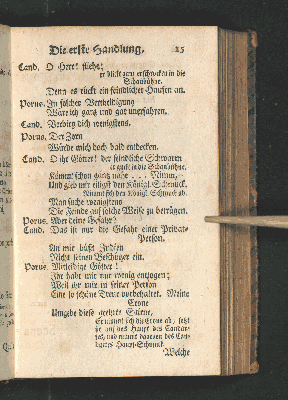 Die erste Handlung. 25
Cand. O Herr! fliehe;
er blickt gantz erschrocken in die
Schaubühne.
Denn es rückt ein feindlicher Haufen an.
Porus. In solcher Vertheidigung
Wäre ich gantz und gar unerfahren.
Cand. Verbirg dich wenigstens.
Porus. Der Zorn
Würde mich doch bald entdecken.
Cand. O ihr Götter! der feindliche Schwarm
er guckt in die Schaubühne.
Kömmt schon gantz nahe . . . Nimm,
Und gieb mir eiligst den Königl. Schmuck,
Nimmt sich den Königl. Schmuck ab.
Man suche wenigstens
Die Feinde auf solche Weise zu betrügen.
Porus. Aber deine Gefahr?
Cand. Das ist nur die Gefahr einer Privat-
Person.
An mir büßt Indien
Nicht seinen Beschützer ein.
Porus. Mitleidige Götter!
Ihr habt mir nur wenig entzogen;
Weil ihr mir in seiner Person
Eine so schöne Treue vorbehaltet. Meine
Crone
Umgebe diese geehrte Stirne,
Er nimmt sich die Crone ab, setzt
sie auf das Haupt des Candar-
tes, und nimmt dagegen des Can-
dartes Haupt-Schmuck.
Welche